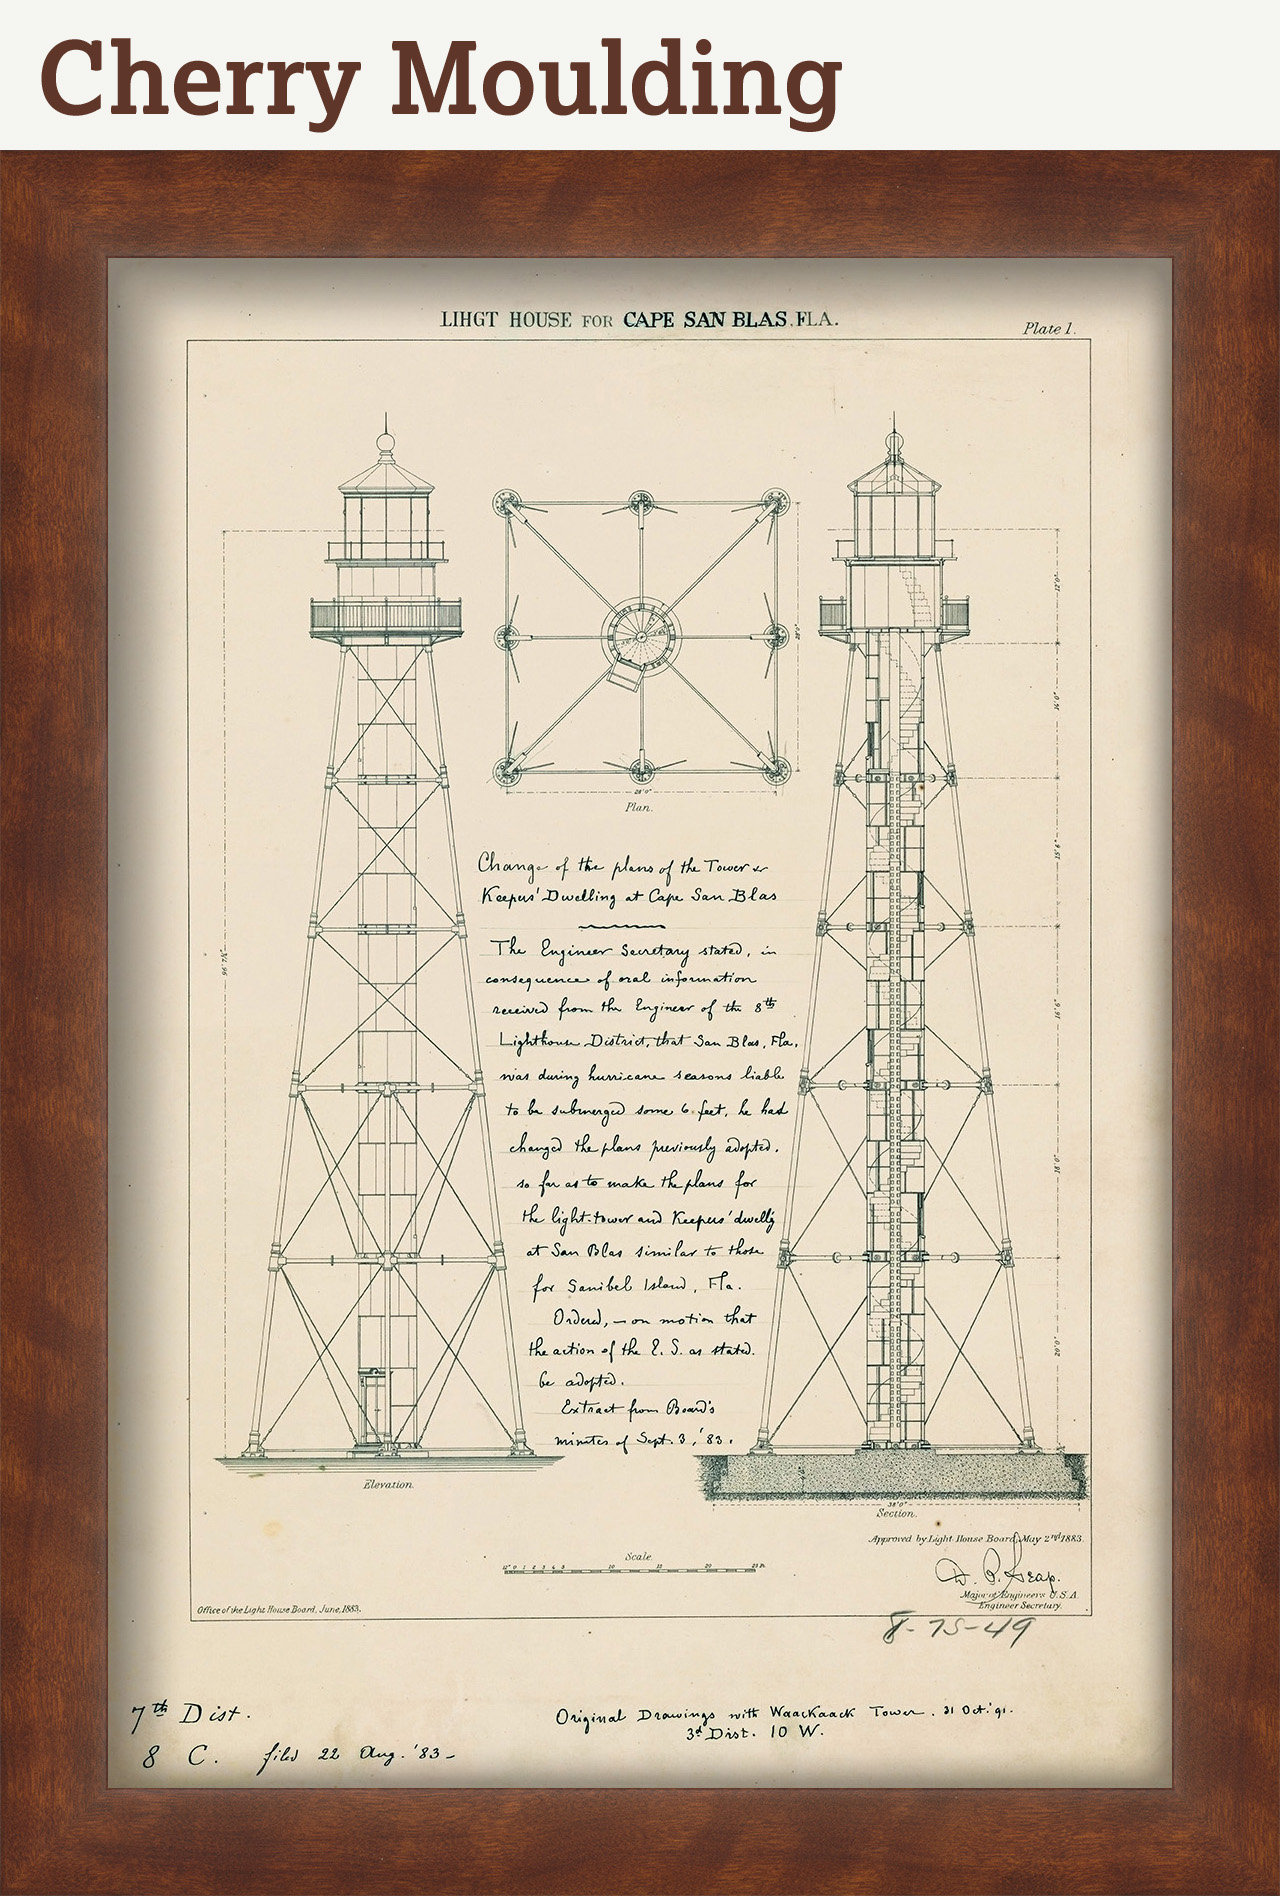 Cherry Moulding
LIHGT HOUSE FOR CAPE SAN BLAS. FLA.
Plate 1.
28'0"
Plan.
Change of the plans of the Tower &
Keepers' Dwelling at Cape San Blas
The Engineer Secretary stated, in
consequence of oral information
received from the Engineer of the 8th
Lighthouse District, that San Blas, Fla.
was during hurricane seasons liable
to be submerged some 6 feet, he had
changed the plans previously adopted,
so far as to make the plans for
the light-tower and Keepers' dwell'g
at San Blas similar to those
for Sanibel Island, Fla.
Ordered, — on motion that
the action of the E. S. as stated.
be adopted.
Extract from Board's
minutes of Sept. 3, '83.
Elevation.
38'0"
Section.
Approved by Light House Board, May 2nd 1883.
Scale.
Major of Engineers U.S.A.
Engineer Secretary.
Office of the Light House Board, June, 1883.
8-75-49
7th Dist.
8 C. filed 22 Aug. '83-
Original Drawings with Waackaack Tower. 31 Oct. '91.
3d Dist. 10 W.